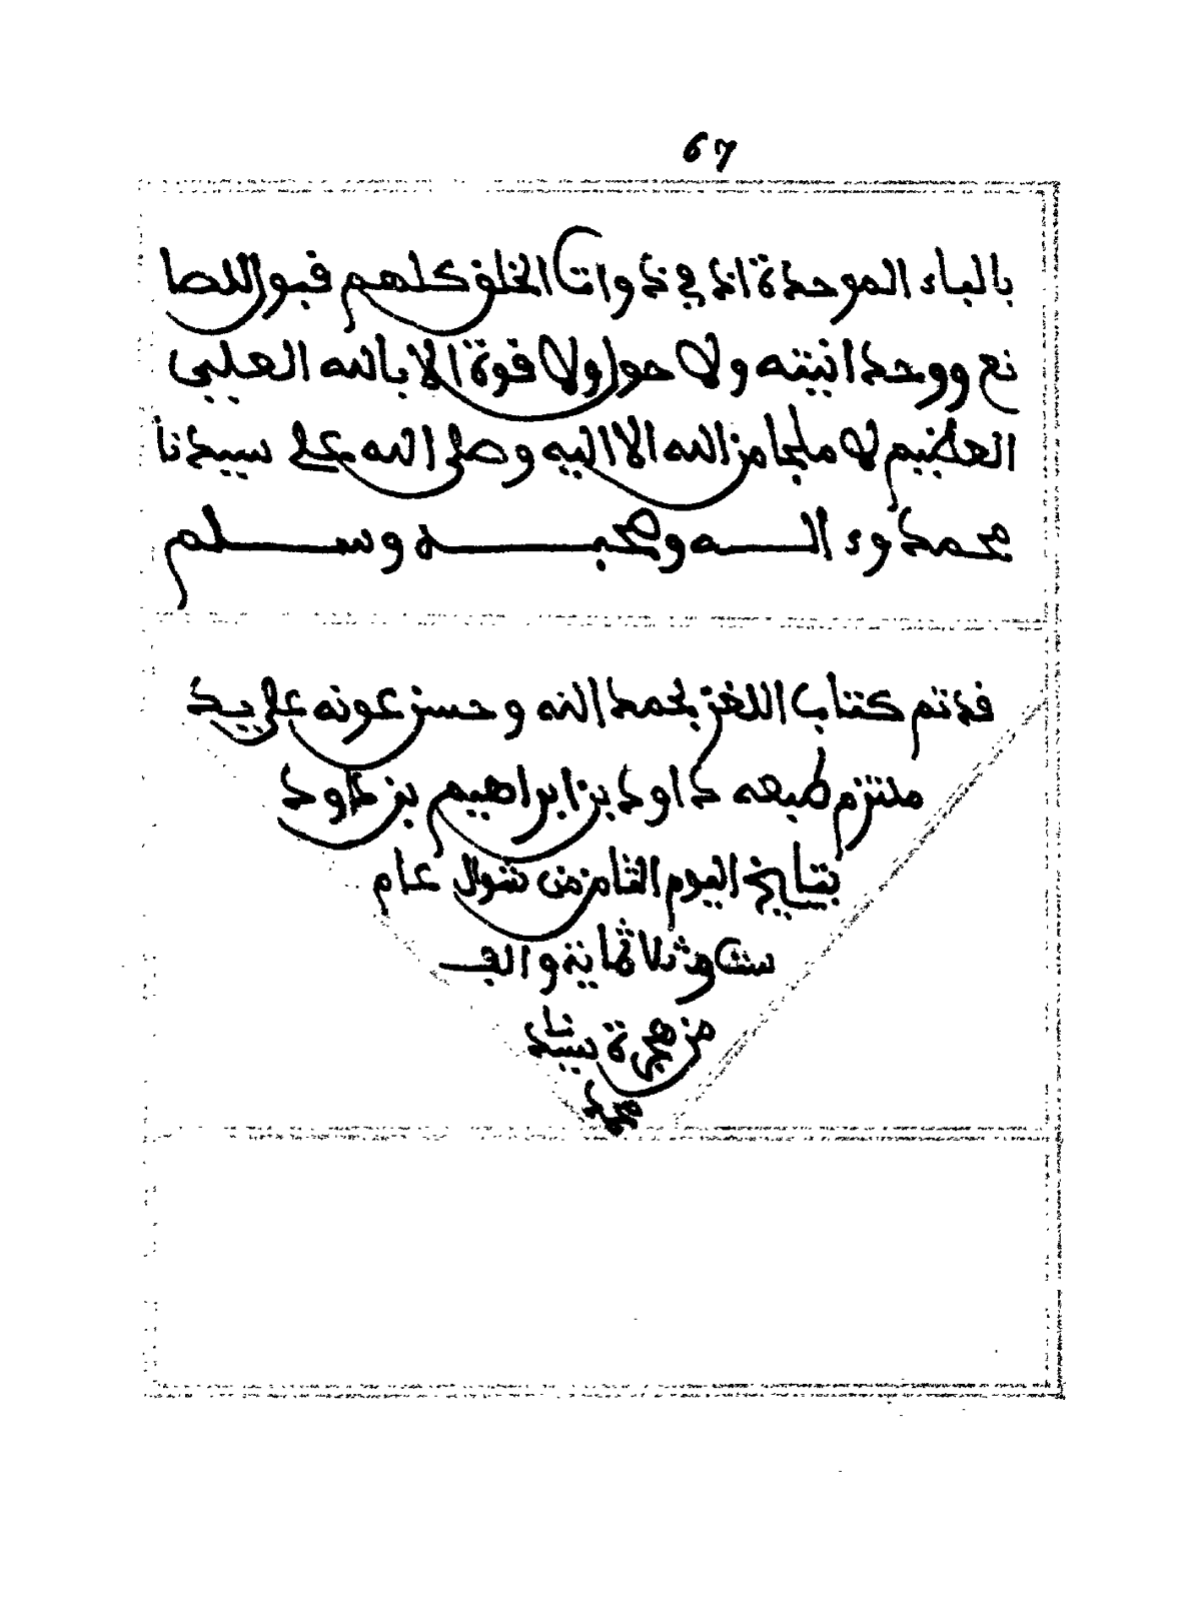 67
بالباء الموحدة اذ في ذوات الخلق كلهم قبول للصا
نع ووحدانيته ولا حول ولا قوة الا بالله العلي
العظيم لا ملجا من الله الا اليه وصلى الله على سيدنا
محمد وءاله وصحبه وسلم
قد تم كتاب اللغز بحمد الله وحسن عونه على يد
ملتزم طبعه داود بن ابراهيم بن داود
بتاريخ اليوم الثامن من شوال عام
ست وثلاثماية والف
من هجرة سيدنا
محمد